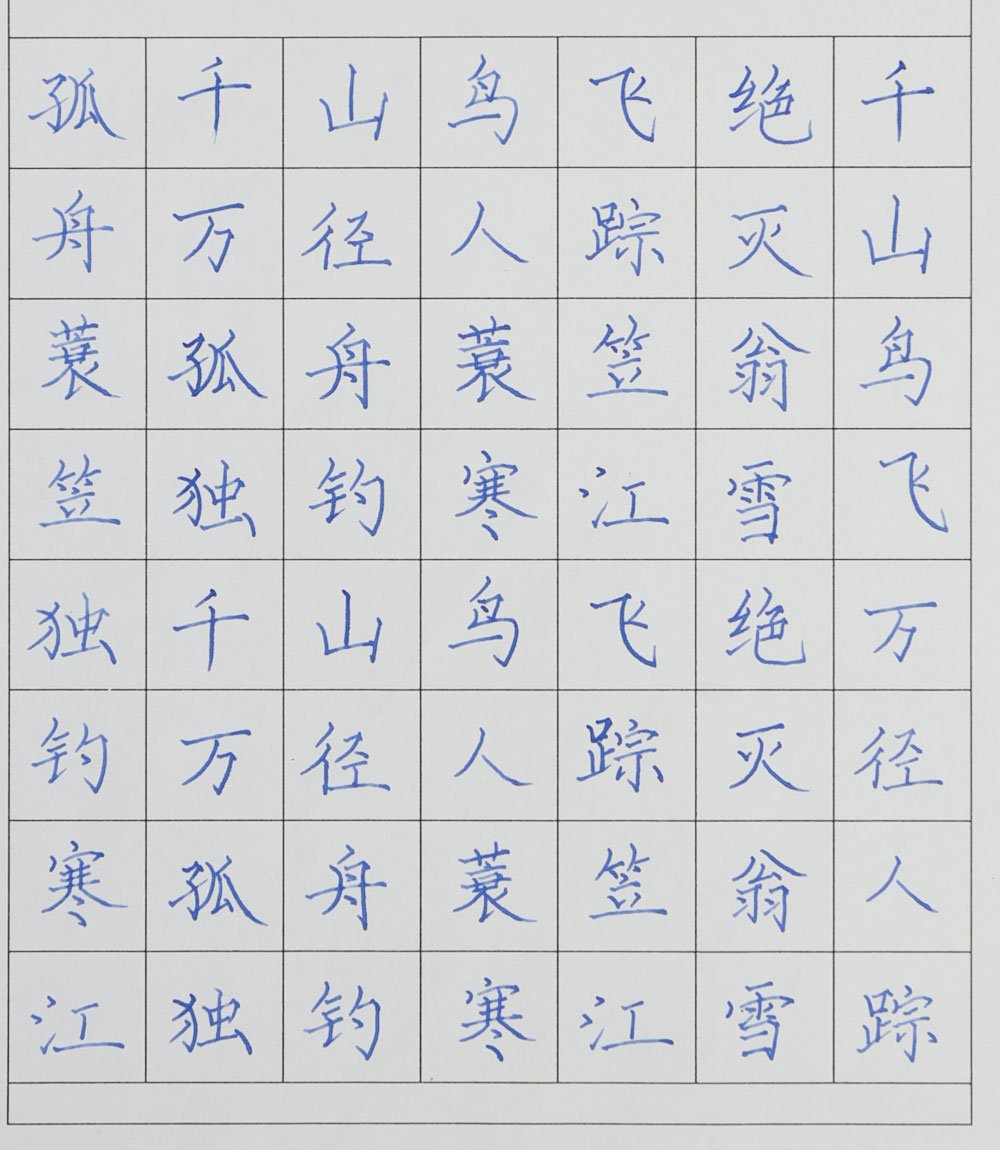 孤千山鸟飞绝千
舟万径人踪灭山
蓑孤舟蓑笠翁鸟
笠独钓寒江雪飞
独千山鸟飞绝万
钓万径人踪灭径
寒孤舟蓑笠翁人
江独钓寒江雪踪